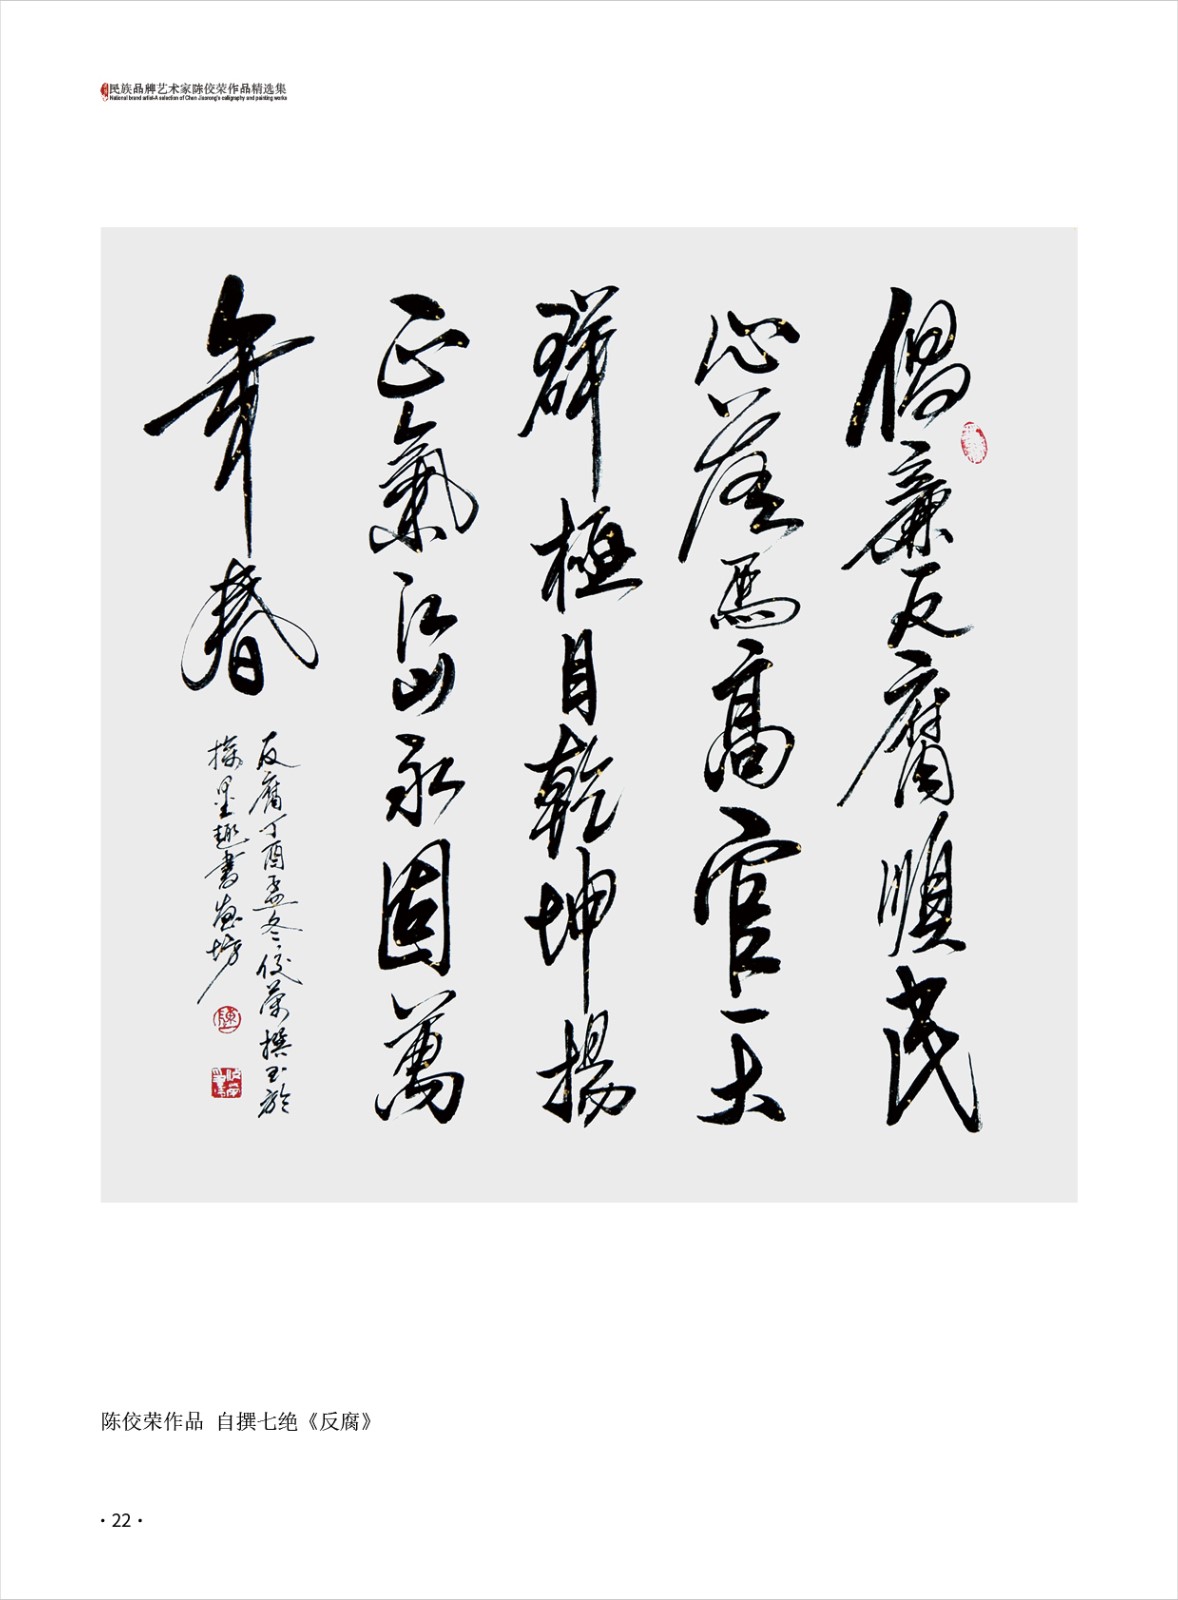 民族品牌艺术家陈佼荣作品精选集
National brand artist-A selection of Chen Jiaorong's calligraphy and painting works
倡廉反腐順民
心落馬高官一大
群極目乾坤揚
正氣江山永固萬
年春
反腐丁酉孟冬佼荣撰書於
墨趣書画坊
陈佼荣作品 自撰七绝《反腐》
·22·